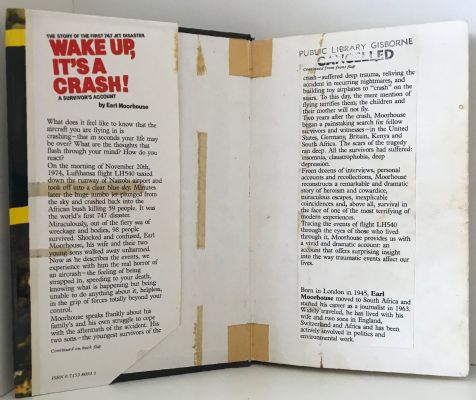 THE STORY OF THE FIRST 747 JET DISASTER
WAKE UP,
IT'S A
CRASH!
A SURVIVOR'S ACCOUNT
by Earl Moorhouse
What does it feel like to know that the
aircraft you are flying in is
crashing—that in seconds your life may
be over? What are the thoughts that
flash through your mind? How do you
react?
On the morning of November 20th,
1974, Lufthansa flight LH540 taxied
down the runway of Nairobi airport and
took off into a clear blue sky. Minutes
later the huge jumbo jet plunged from
the sky and crashed back into the
African bush killing 59 people. It was
the world's first 747 disaster.
Miraculously, out of the fiery sea of
wreckage and bodies, 98 people
survived. Shocked and confused, Earl
Moorhouse, his wife and their two
young sons walked away unharmed.
Now as he describes the events, we
experience with him the real horror of
an aircrash—the feeling of being
strapped in, speeding to your death,
knowing what is happening but being
unable to do anything about it, helpless,
in the grip of forces totally beyond your
control.
Moorhouse speaks frankly about his
family's and his own struggle to cope
with the aftermath of the accident. His
two sons—the youngest survivors of the
Continued on back flap
ISBN 0 7153 8093 3
PUBLIC LIBRARY GISBORNE
CANCELLED
Continued from front flap
crash—suffered deep trauma, reliving the
accident in recurring nightmares, and
building toy airplanes to "crash" on the
stairs. To this day, the mere mention of
flying terrifies them; the children and
their mother will not fly.
Two years after the crash, Moorhouse
began a painstaking search for fellow
survivors and witnesses—in the United
States, Germany, Britain, Kenya and
South Africa. The scars of the tragedy
ran deep. All the survivors had suffered:
insomnia, claustrophobia, deep
depression.
From dozens of interviews, personal
accounts and recollections, Moorhouse
reconstructs a remarkable and dramatic
story of heroism and cowardice,
miraculous escapes, inexplicable
coincidences and, above all, survival in
the face of one of the most terrifying of
modern experiences.
Tracing the events of flight LH540
through the eyes of those who lived
through it, Moorhouse provides us with
a vivid and dramatic account: an
account that offers surprising insight
into the way traumatic events affect our
lives.
Born in London in 1945, Earl
Moorhouse moved to South Africa and
started his career as a journalist in 1963.
Widely traveled, he has lived with his
wife and two sons in England,
Switzerland and Africa and has been
actively involved in politics and
environmental work.